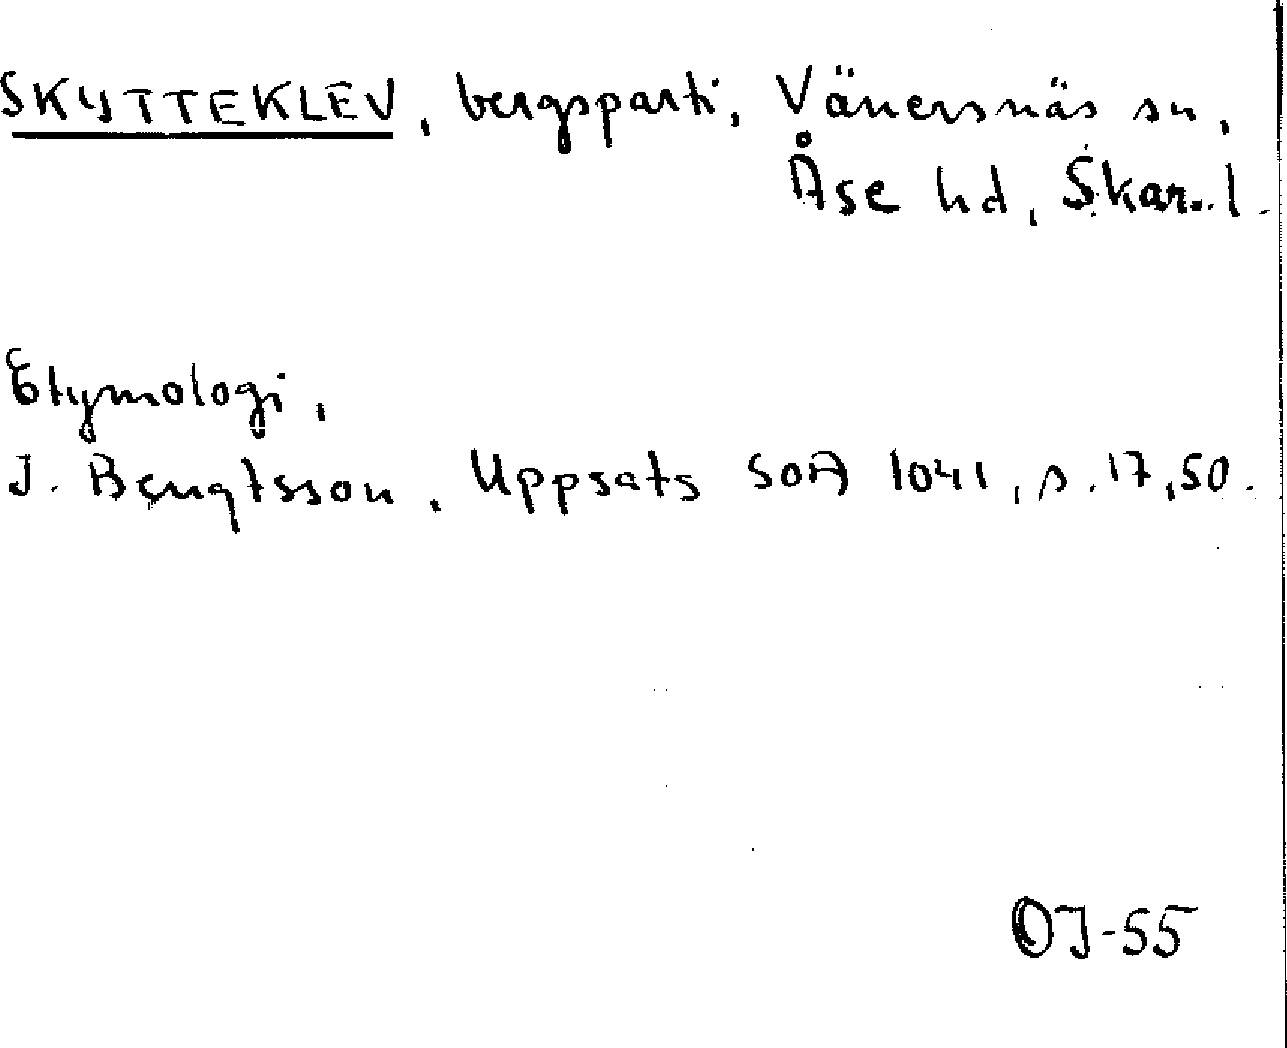 SKYTTEKLEV, bergsparti, Vänersnäs sn,
Åse hd, Skar. l.
Etymologi,
J. Bengtsson, Uppsats SOA 1041, s. 17, 50.
OJ-55